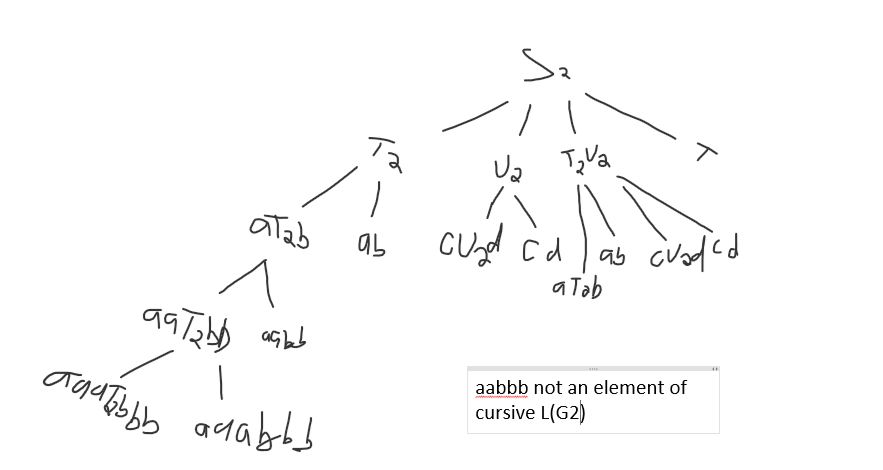 S₂
T₂ U₂ T₂U₂ T
aT₂b ab CU₂d Cd aT₂b ab CU₂d Cd
aaT₂bb aabb
aaaT₂bbb aaabbb
aabbb not an element of
cursive L(G2)